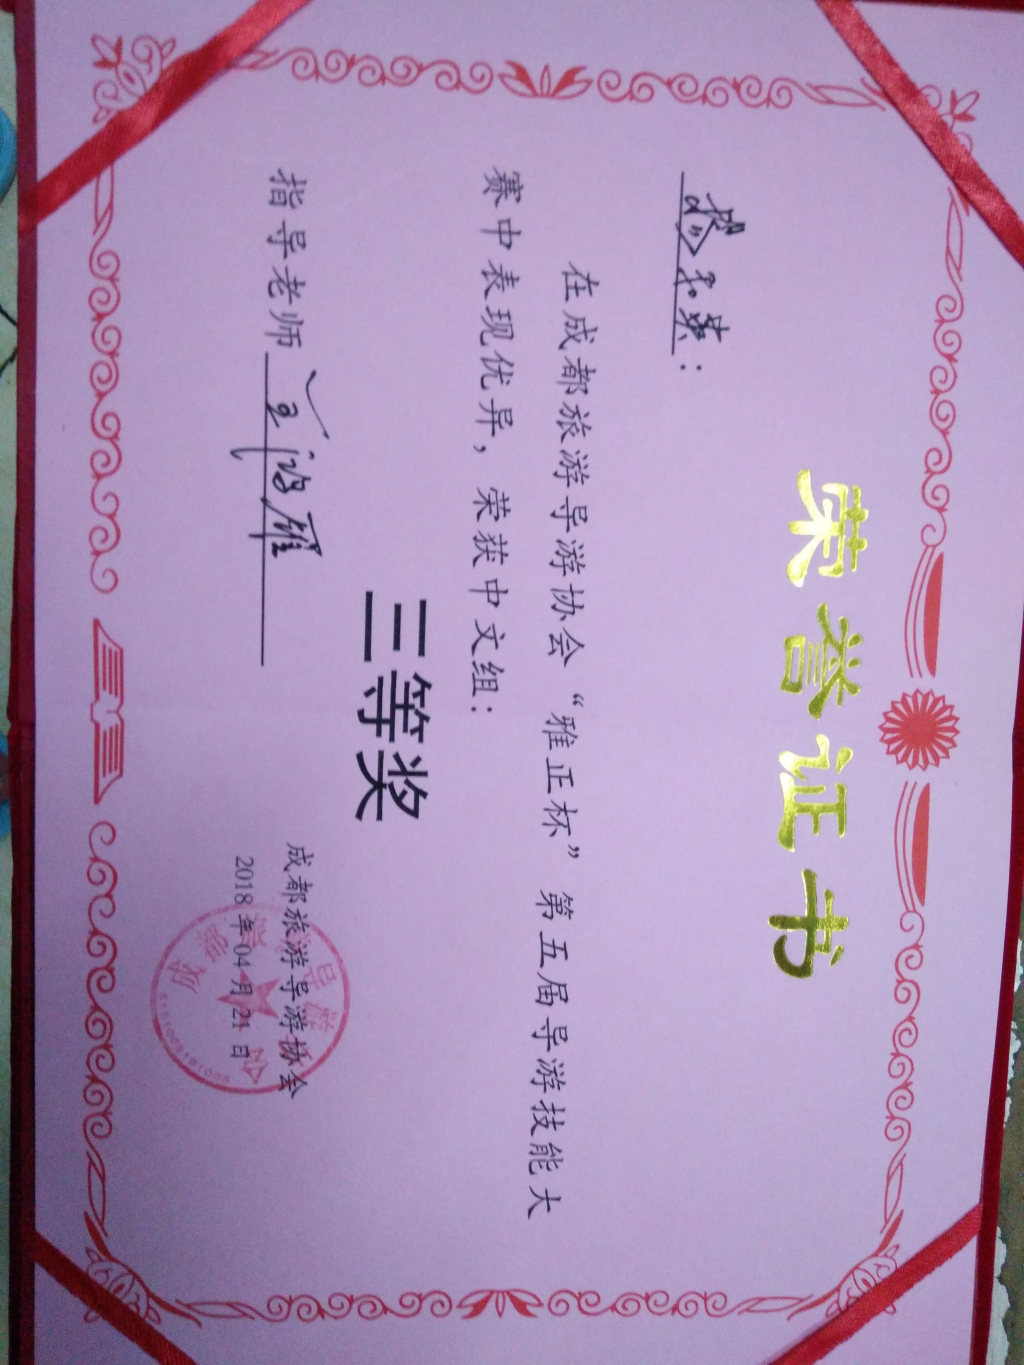 荣誉证书
：
在成都旅游导游协会“雅正杯”第五届导游技能大
赛中表现优异，荣获中文组：
三等奖
指导老师 王鸿雁
成都旅游导游协会
2018年04月21日